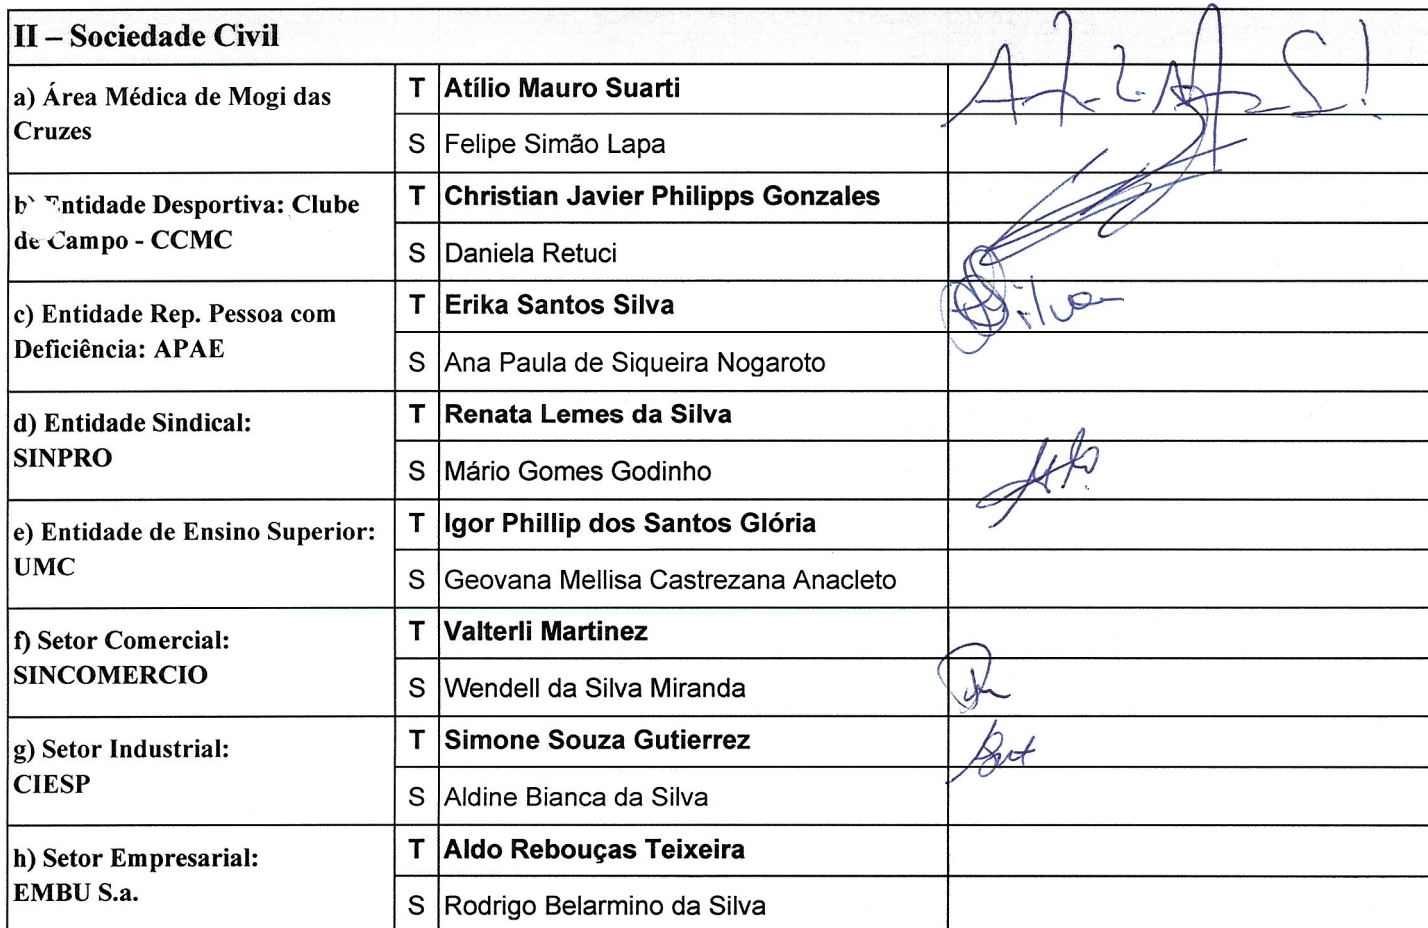 II – Sociedade Civil
a) Área Médica de Mogi das
Cruzes
T Atílio Mauro Suarti
S Felipe Simão Lapa
b) Entidade Desportiva: Clube
de Campo - CCMC
T Christian Javier Philipps Gonzales
S Daniela Retuci
c) Entidade Rep. Pessoa com
Deficiência: APAE
T Erika Santos Silva
Silva
S Ana Paula de Siqueira Nogaroto
d) Entidade Sindical:
SINPRO
T Renata Lemes da Silva
S Mário Gomes Godinho
e) Entidade de Ensino Superior:
UMC
T Igor Phillip dos Santos Glória
S Geovana Mellisa Castrezana Anacleto
f) Setor Comercial:
SINCOMERCIO
T Valterli Martinez
S Wendell da Silva Miranda
g) Setor Industrial:
CIESP
T Simone Souza Gutierrez
S Aldine Bianca da Silva
h) Setor Empresarial:
EMBU S.a.
T Aldo Rebouças Teixeira
S Rodrigo Belarmino da Silva